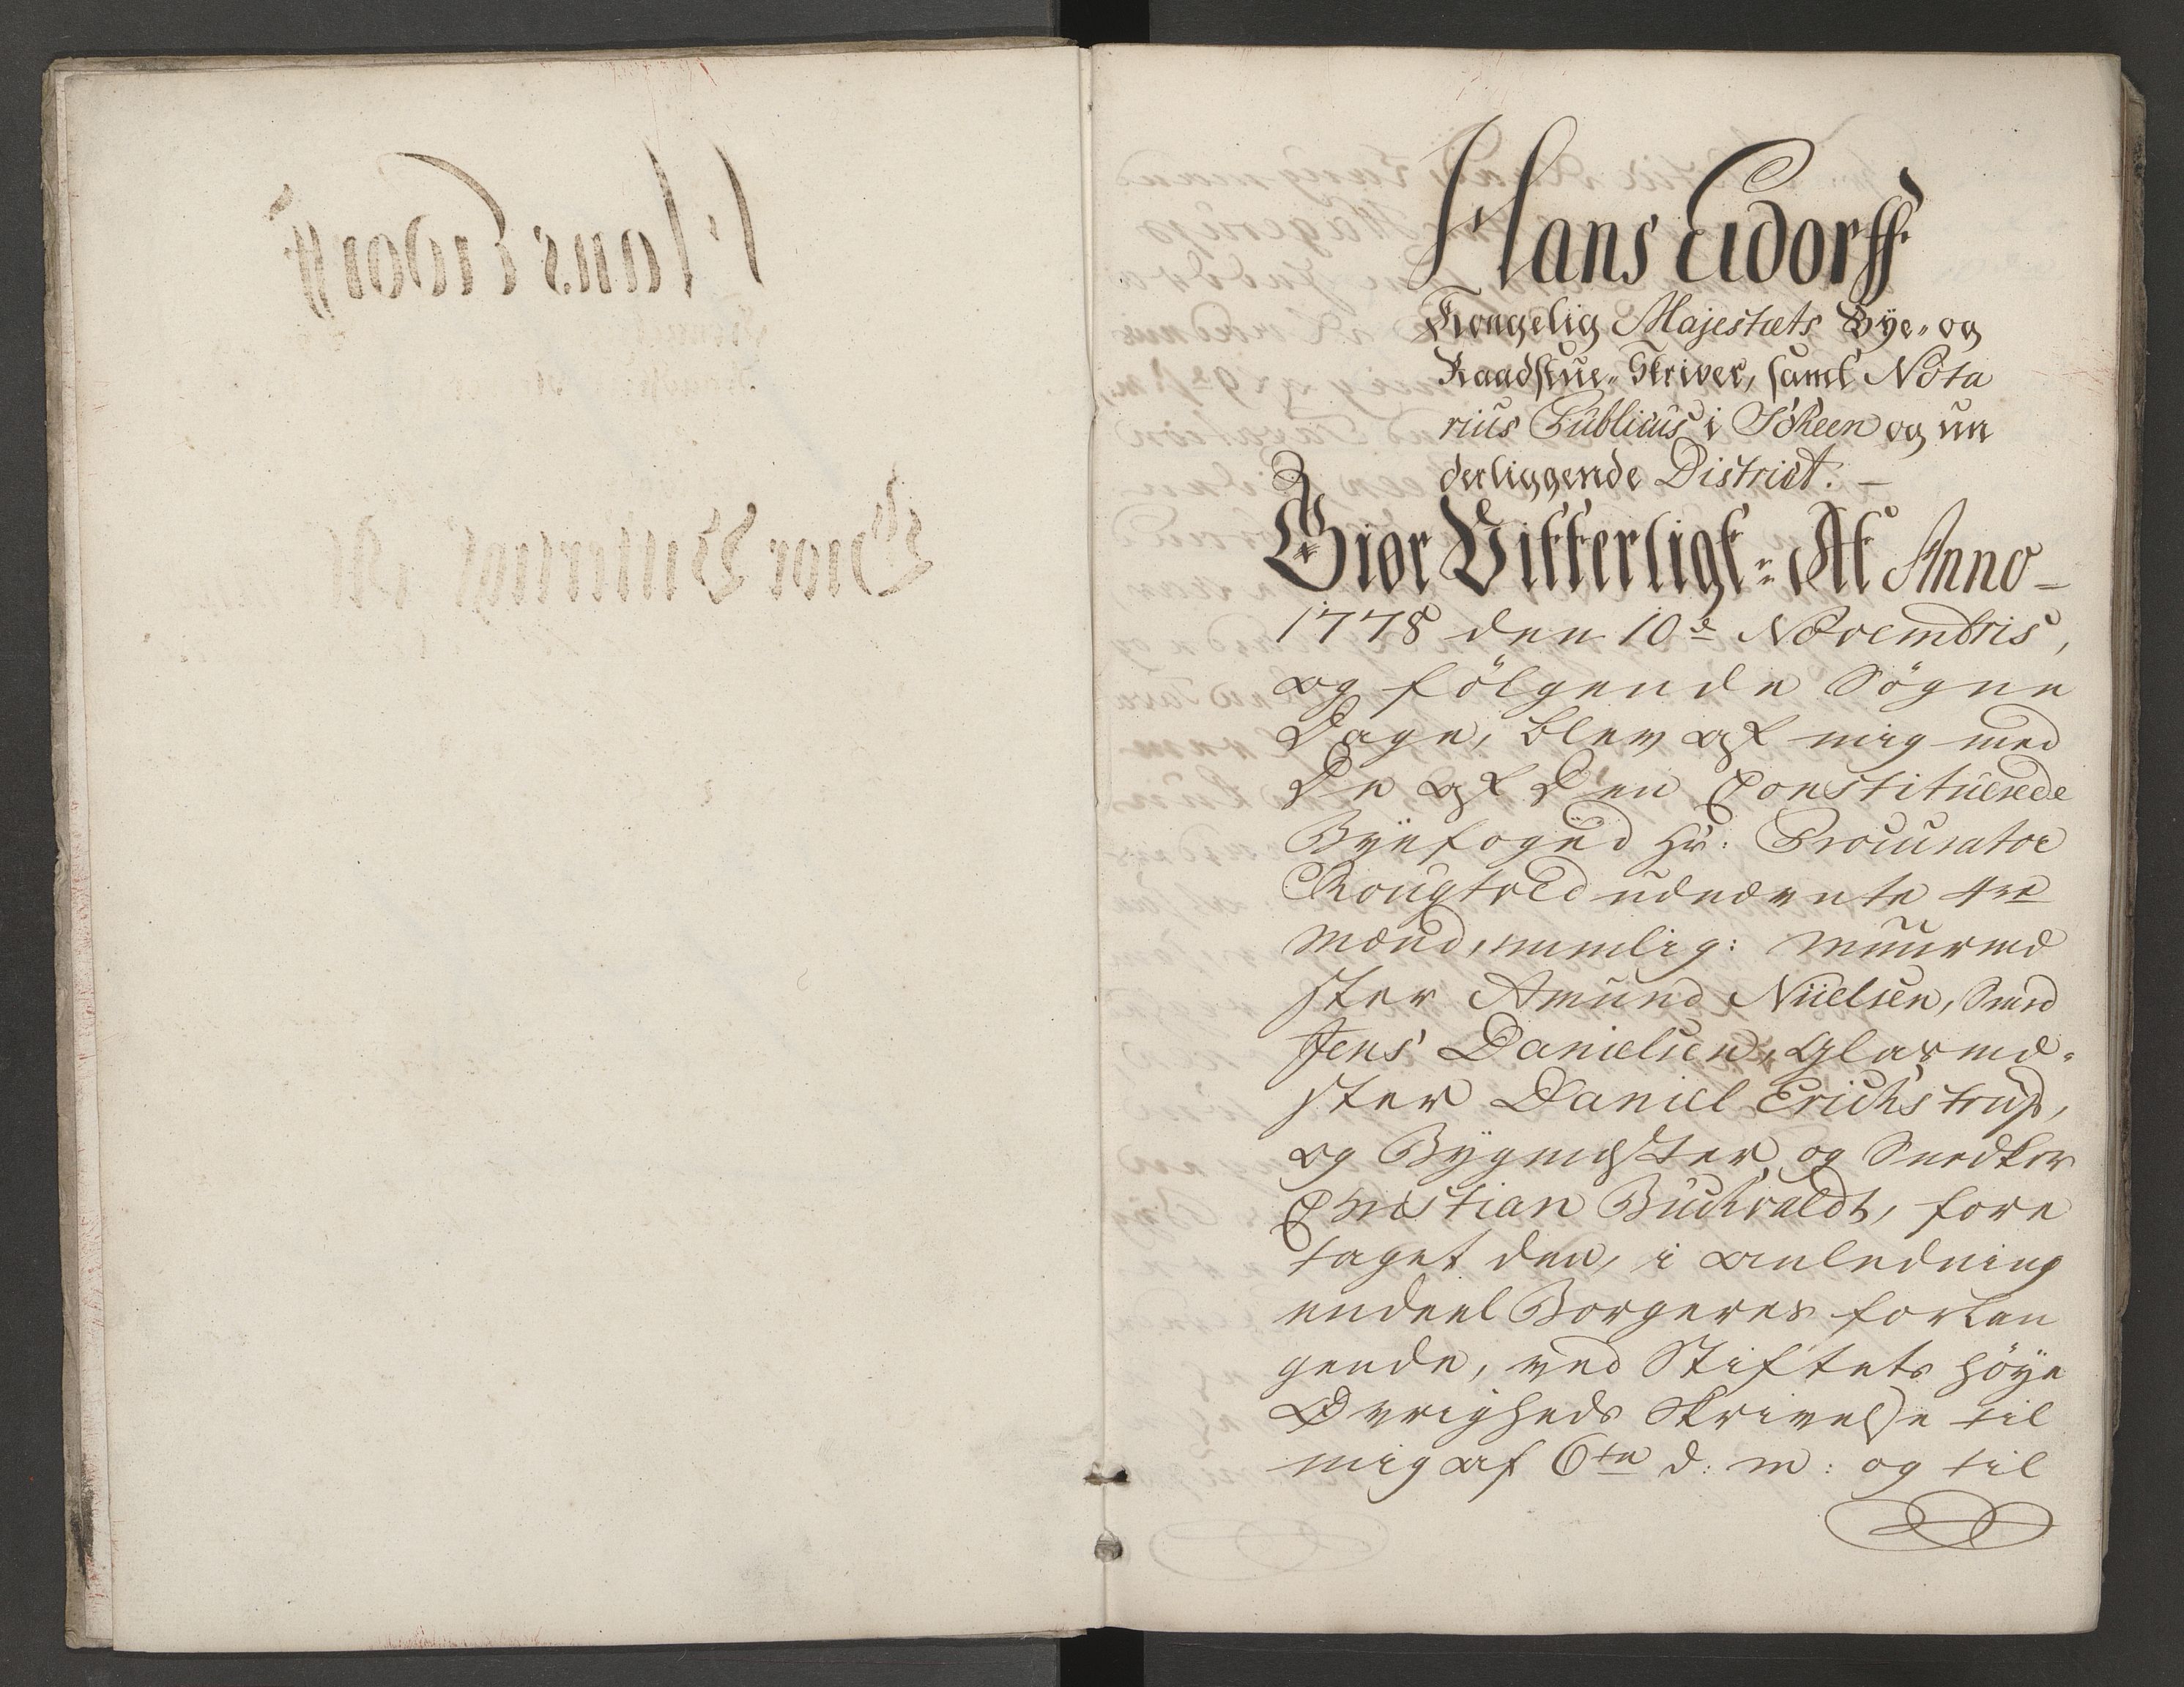 Hans Eidorff
Kongelig Majestæts Bye- og
Raadstue-Skriver, samt Nota
rius Publicus i Scheen og un
derliggende District. -
Giør Vitterligt: At Anno -
1778 den 10de Novembris,
og følgende Søgne
Dage, blev af mig med
De af Den Constituerede
Byefoged Hr: Procurator
Rougtved udnævnte 4re
Mænd, nemlig: Muurme
ster Amund Nielsen, Smed
Jens Danielsen, Glasme-
ster Daniel Erichstrup,
og Bygmester og Snedker
Christian Buchvaldt, fore
taget den, i anledning
endeel Borgeres forlan
gende, ved Stiftets høye
Øvrigheds Skrivelse til
mig af 6te d: m: og til